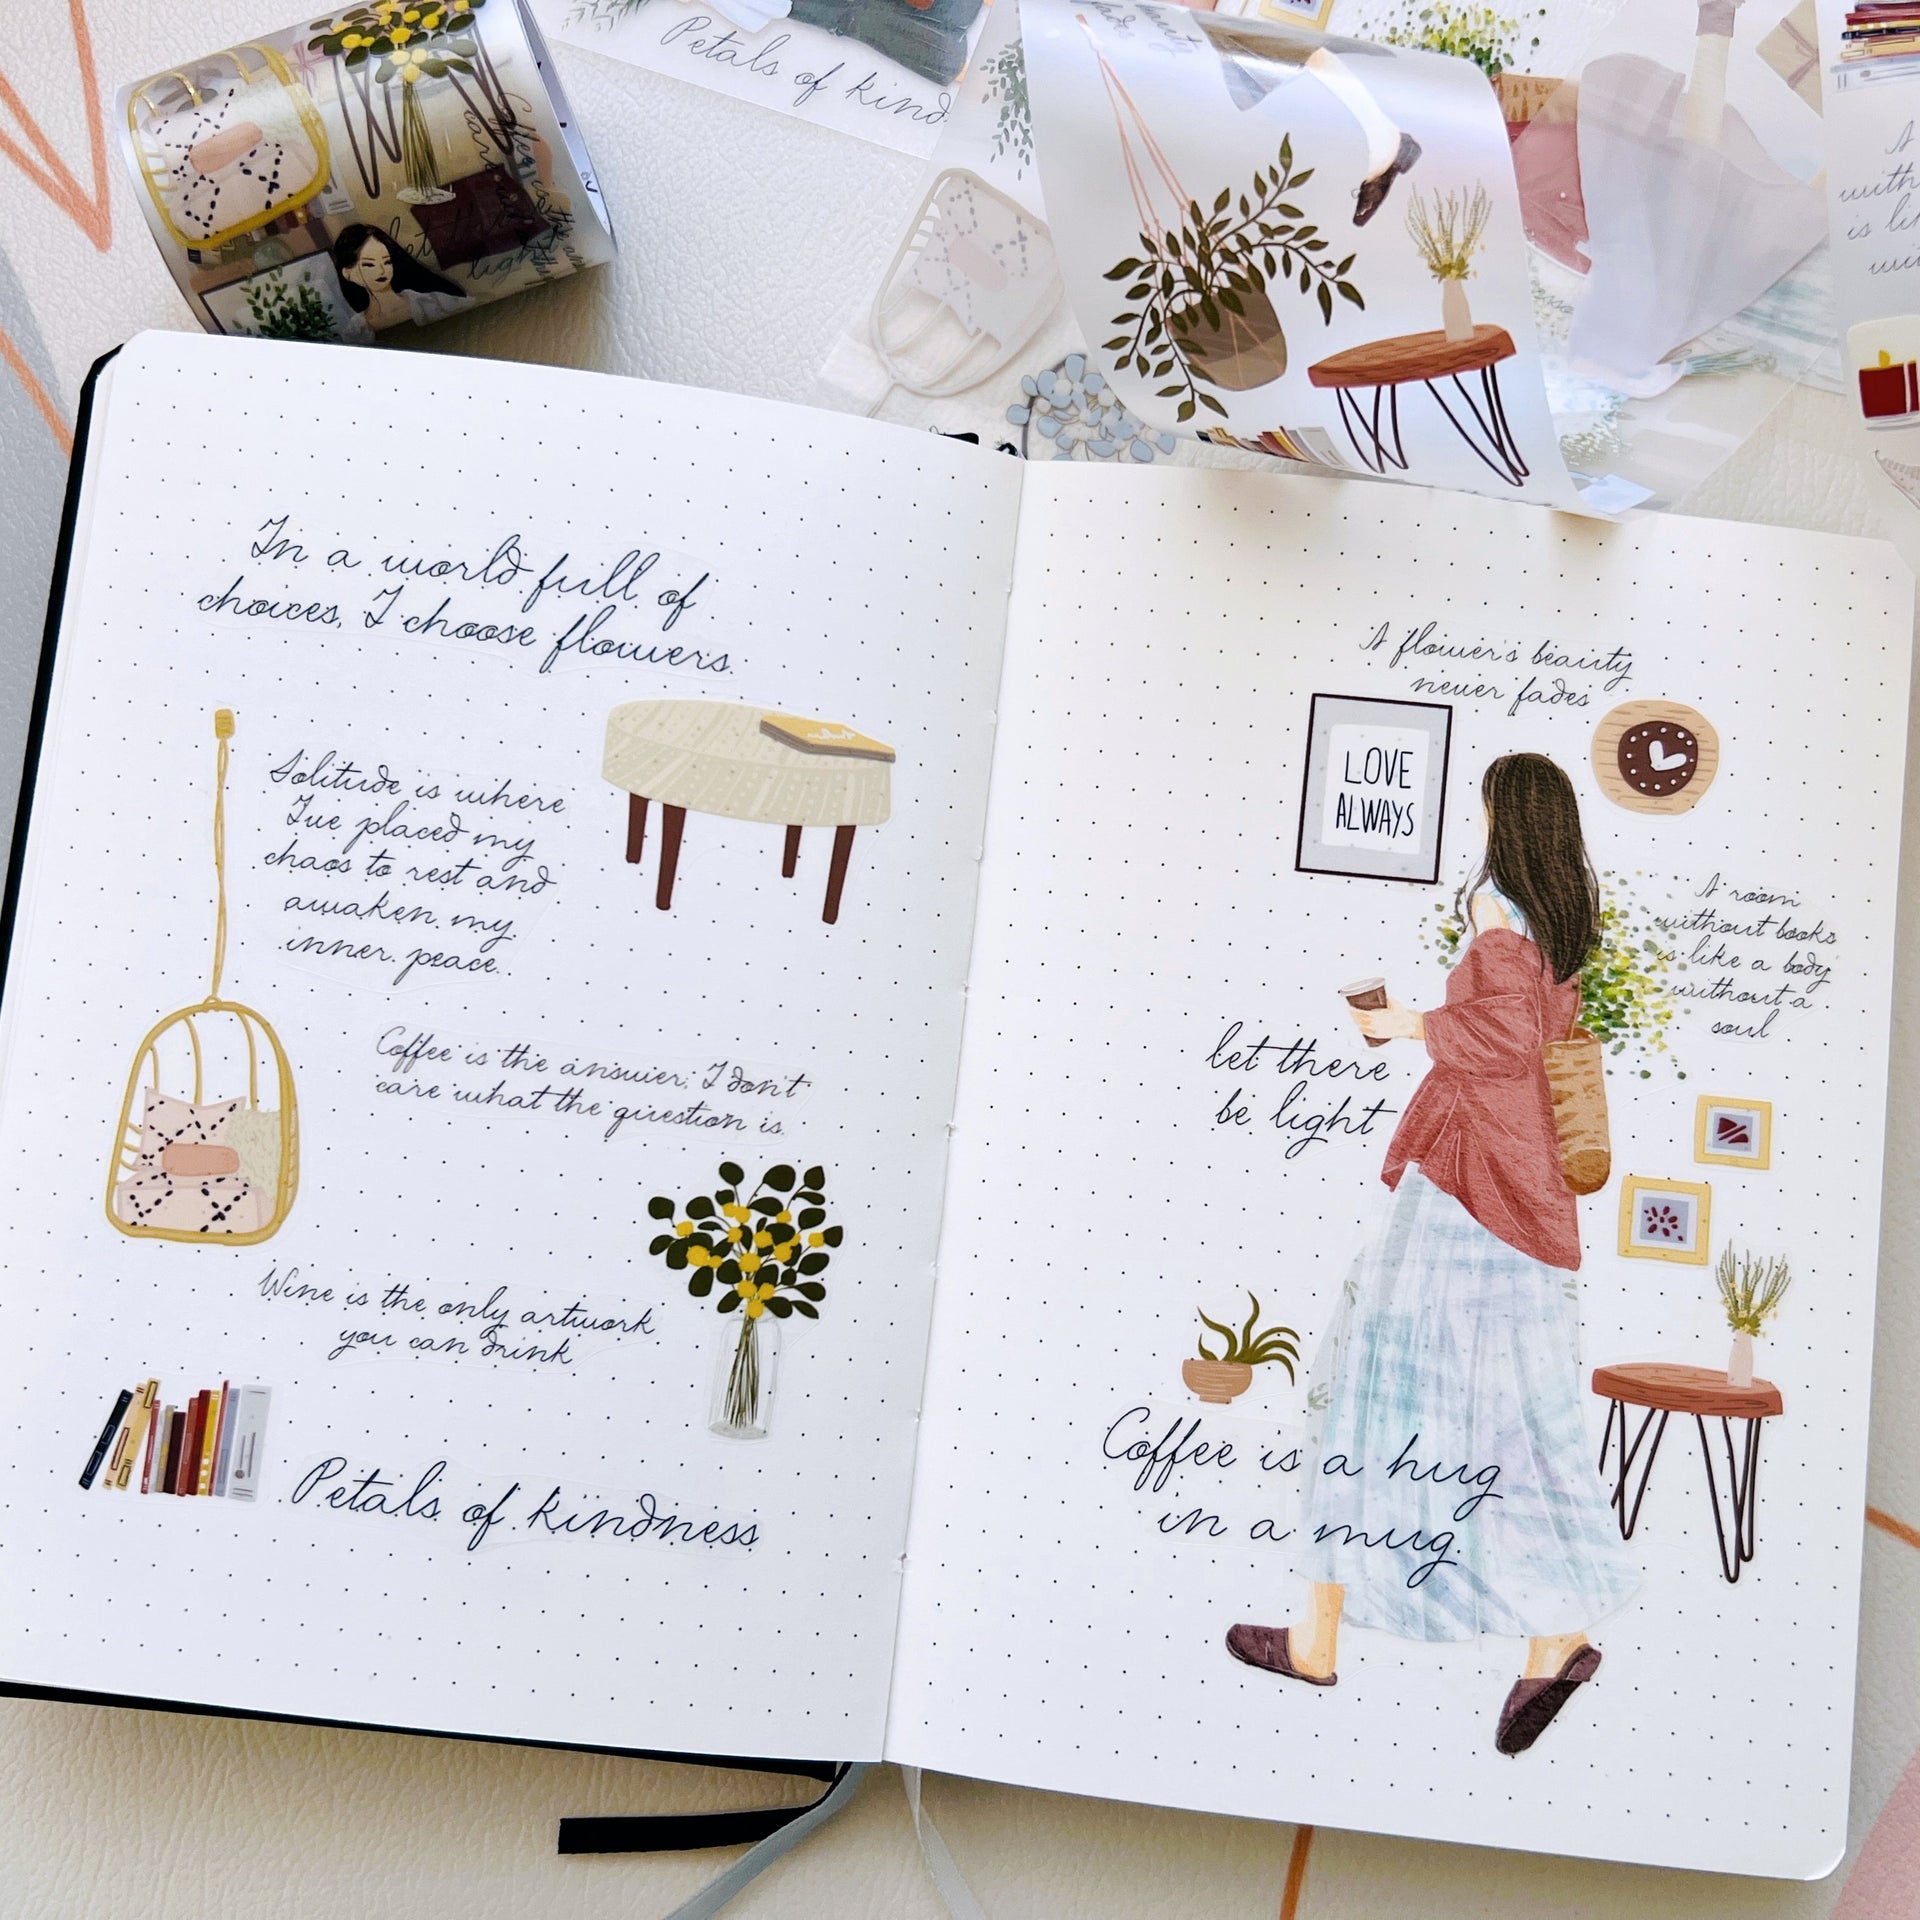 Petals of kind
In a world full of
choices, I choose flowers.
Solitude is where
I've placed my
chaos to rest and
awaken my
inner peace.
Coffee is the answer; I don't
care what the question is.
Wine is the only artwork
you can drink
Petals of kindness
A flower's beauty
never fades
LOVE
ALWAYS
A room
without books
is like a body
without a
soul
let there
be light
Coffee is a hug
in a mug.